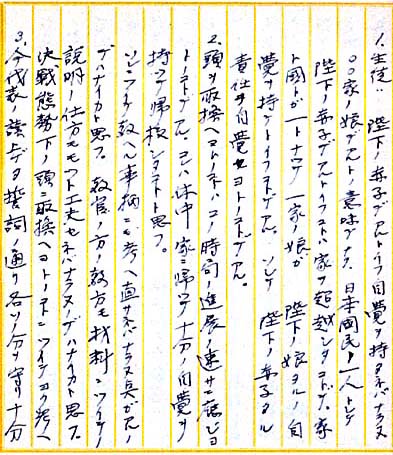 1.生徒ハ 陛下ノ赤子デアルトイフ自覚ヲ持タネバナラヌ
○○家ノ娘デアルトノ意味デナク 日本国民ノ一人トシテ
陛下ノ赤子デアルトイフコトハ家ヲ超越シタコトデ、家
ト国トガ一トナツテ 一家ノ娘ガ 陛下ノ娘タルノ自
覚ヲ持テトイフコトデアル。ソシテ 陛下ノ赤子タル
責任ヲ自覚セヨトノコトデアル。
2.頭ヲ取換ヘヨトノコトハコノ時局ノ進展ノ速サニ応ジヨ
トノコトデアル。コレハ休中 家ニ帰ツテ十分ノ自覚ヲ
持ツテ帰校シタコトト思フ。
ソレダケ教ヘル事柄モ考ヘ直サネバナラヌ点ガアルノ
デハナイカト思フ。教官ノ方ノ教方モ材料ニツイテノ
説明ノ仕方モモツト工夫セネバナラヌノデハナイカト思フ。
決戦態勢下ノ頭ニ取換ヘヨトノコトニツイテヨク考ヘ
3.今代表ノ読上ゲタ誓詞ノ通リ各〻ノ分ヲ守リ十分